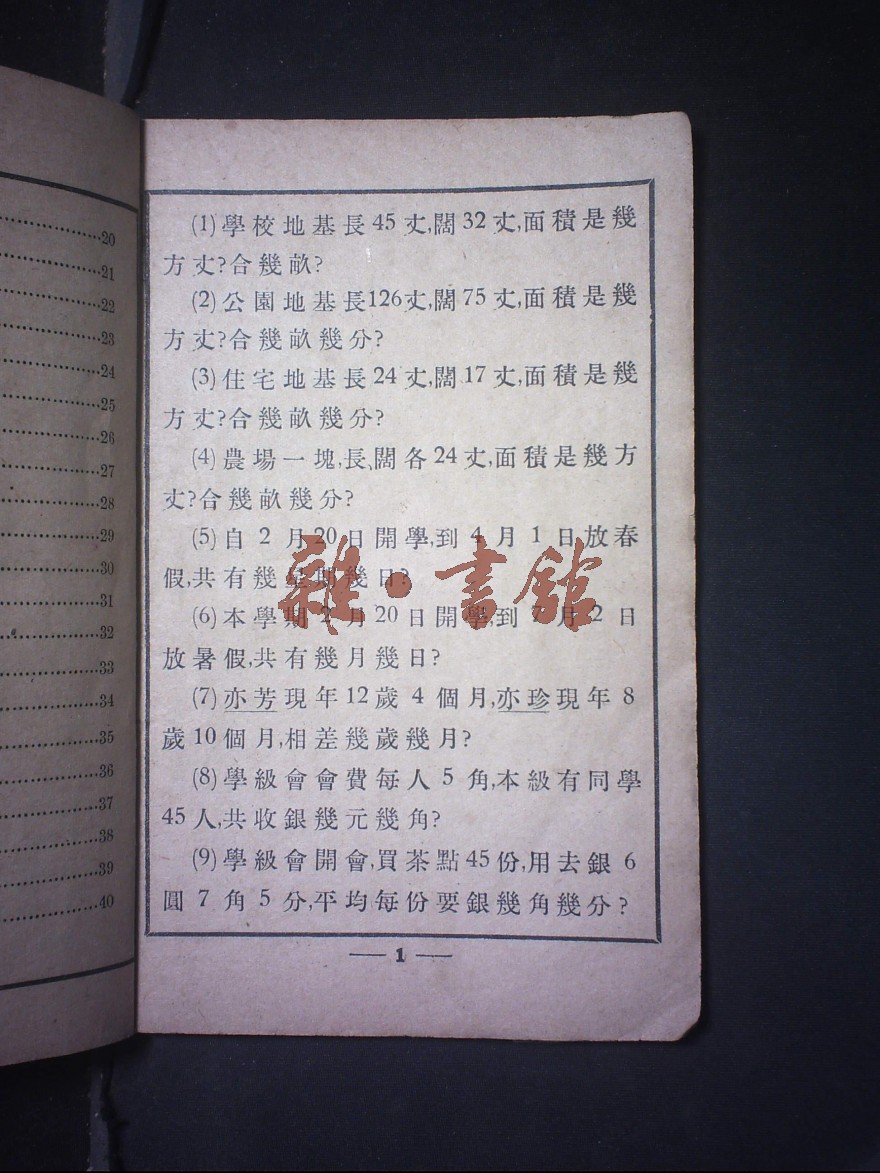 20
21
22
23
24
25
26
27
28
29
30
31
32
33
34
35
36
37
38
39
40
(1)學校地基長45丈,闊32丈,面積是幾
方丈?合幾畝?
(2)公園地基長126丈,闊75丈,面積是幾
方丈?合幾畝幾分?
(3)住宅地基長24丈,闊17丈,面積是幾
方丈?合幾畝幾分?
(4)農場一塊,長、闊各24丈,面積是幾方
丈?合幾畝幾分?
(5)自2月20日開學,到4月1日放春
假,共有幾星期幾日?
(6)本學期2月20日開學,到7月2日
放暑假,共有幾月幾日?
(7)亦芳現年12歲4個月,亦珍現年8
歲10個月,相差幾歲幾月?
(8)學級會會費每人5角,本級有同學
45人,共收銀幾元幾角?
(9)學級會開會,買茶點45份,用去銀6
圓7角5分,平均每份要銀幾角幾分?
— 1 —
雜·書館